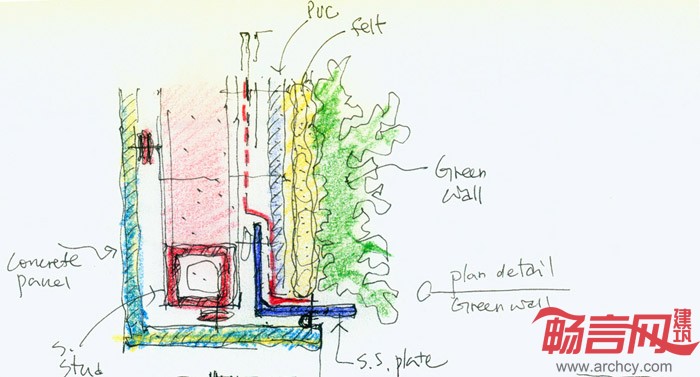 PVC
felt
Green
wall
concrete
panel
plan detail
Green wall
S.
Stud
S.S. plate
畅言网
建筑
www.archcy.com